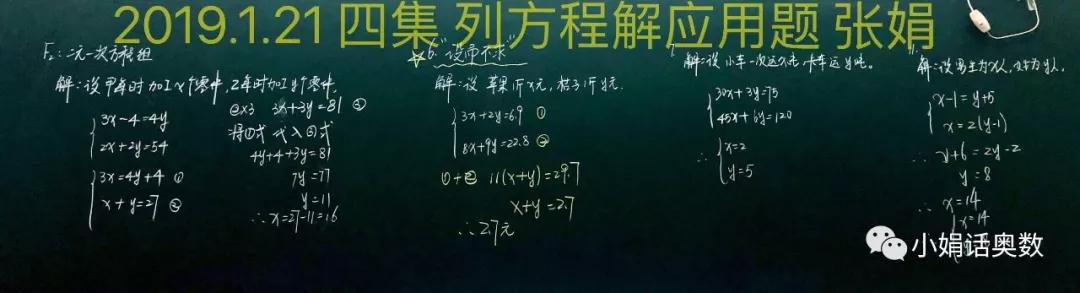 2019.1.21 四集 列方程解应用题 张娟
5:二元一次方程组
解:设甲每时加工x个零件,乙每时加工y个零件.
3x-4=4y
2x+2y=54
3x=4y+4 ①
x+y=27 ②
②×3 3x+3y=81 ③
将①式代入③式
4y+4+3y=81
7y=77
y=11
∴x=27-11=16
☆6."设而不求"
解:设苹果1斤x元,桔子1斤y元.
3x+2y=6.9 ①
8x+9y=22.8 ②
①+② 11(x+y)=29.7
x+y=2.7
∴2.7元
解:设小车一次运x吨,卡车运y吨。
30x+3y=75
45x+6y=120
∴ x=2
y=5
解:设男生为x人,女生为y人.
x-1=y+5
x=2(y-1)
∴y+6=2y-2
y=8
∴x=14
x=14
小娟话奥数